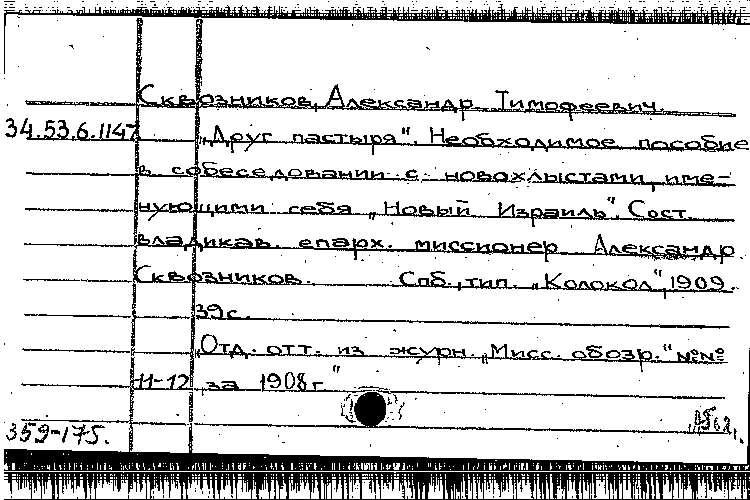 Сквозников, Александр Тимофеевич.
34.53.6.1147 „Друг пастыря". Необходимое пособие
в собеседовании с новохлыстами, име-
нующими себя „Новый Израиль". Сост.
владикав. епарх. миссионер Александр
Сквозников. Спб., тип. „Колокол", 1909.
39с.
Отд. отт. из журн. „Мисс. обозр." №№
11-12 за 1908г."
359-175.